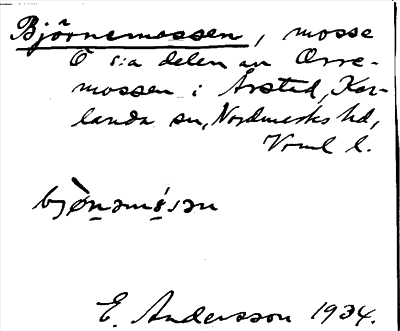 Björnemossen, mosse
Ö s:a delen av Orre-
mossen i Årstad, Kar-
landa sn, Nordmarks hd,
Vrml l.
E. Andersson 1934.